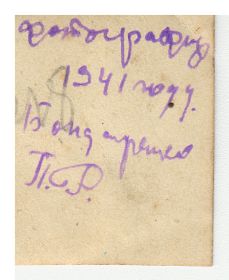 фотография
1941 году.
Бондаренко
П.Р.